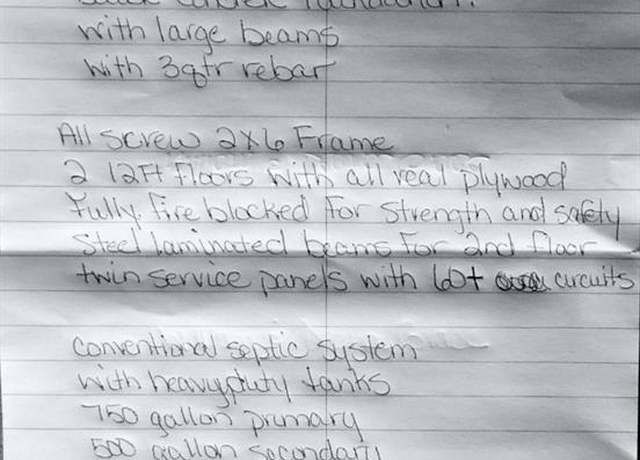 concrete foundation.
with large beams
with 3qtr rebar
All screw 2x6 Frame
2 12Ft Floors with all real plywood
Fully fire blocked For Strength and safety
Steel laminated beams For 2nd floor
twin service panels with 60+ circuits
Conventional septic system
with heavyduty tanks
750 gallon primary
500 gallon secondary